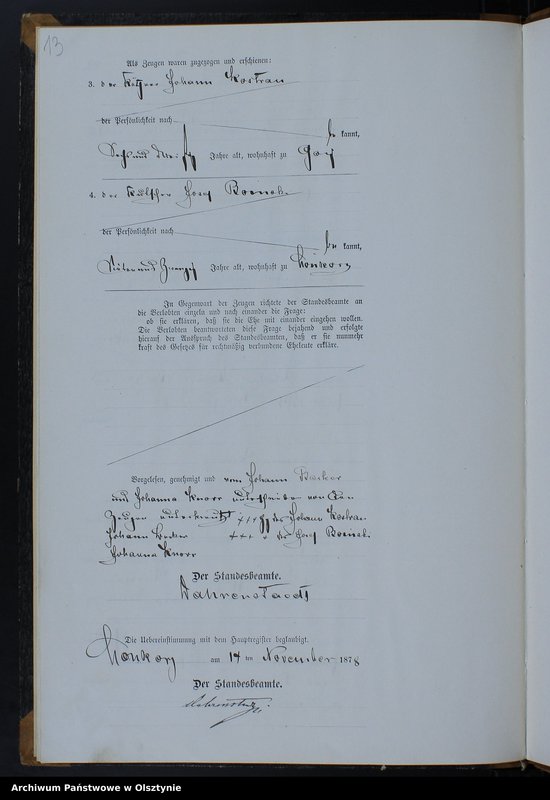 13
Als Zeugen waren zugezogen und erschienen:
3. der Käthner Johann Kostran
der Persönlichkeit nach
be kannt,
Sechs und dreißig Jahre alt, wohnhaft zu
4. der Kutscher Josef
der Persönlichkeit nach
be kannt,
und zwanzig Jahre alt, wohnhaft zu
In Gegenwart der Zeugen richtete der Standesbeamte an
die Verlobten einzeln und nach einander die Frage:
ob sie erklären, daß sie die Ehe mit einander eingehen wollen.
Die Verlobten beantworteten diese Frage bejahend und erfolgte
hierauf der Ausspruch des Standesbeamten, daß er sie nunmehr
kraft des Gesetzes für rechtmäßig verbundene Eheleute erkläre.
Vorgelesen, genehmigt und vom Johann Becker
und Johanna Knorr unterschrieben von den
Zeugen unterkreuzt +++ des Johann Kostran
Johann Becker +++ des Josef
Johanna Knorr
Der Standesbeamte.
Nahrenstaedt
Die Uebereinstimmung mit dem Hauptregister beglaubigt.
am 14 ten November 1878
Der Standesbeamte.
Archiwum Państwowe w Olsztynie